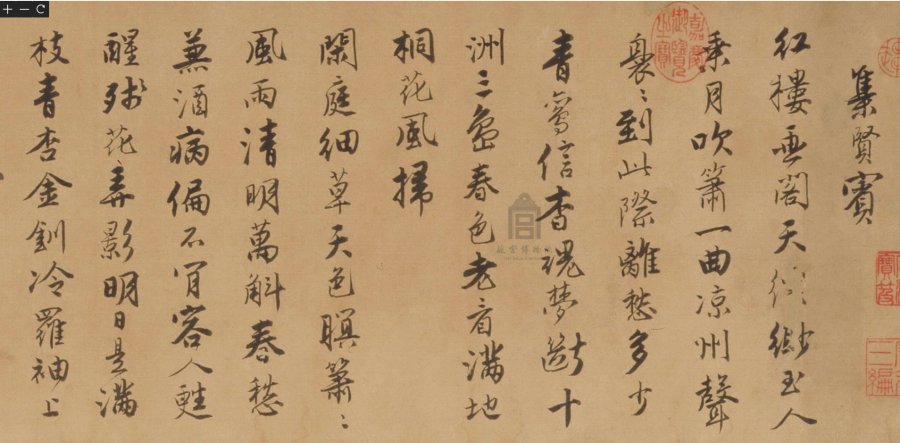 集賢賓
紅樓画閣天縹緲玉人
乘月吹簫一曲凉州聲
裊〻到此際離愁多少
青鸞信杳魂夢斷十
洲三島春色老看滿地
桐花風掃
閑庭細草天色暝簫〻
風雨清明萬斛春愁
兼酒病偏不肎容人甦
醒殘花弄影明日是滿
枝青杏金釧冷羅袖上
嘉慶御覽之寶
故宮博物院